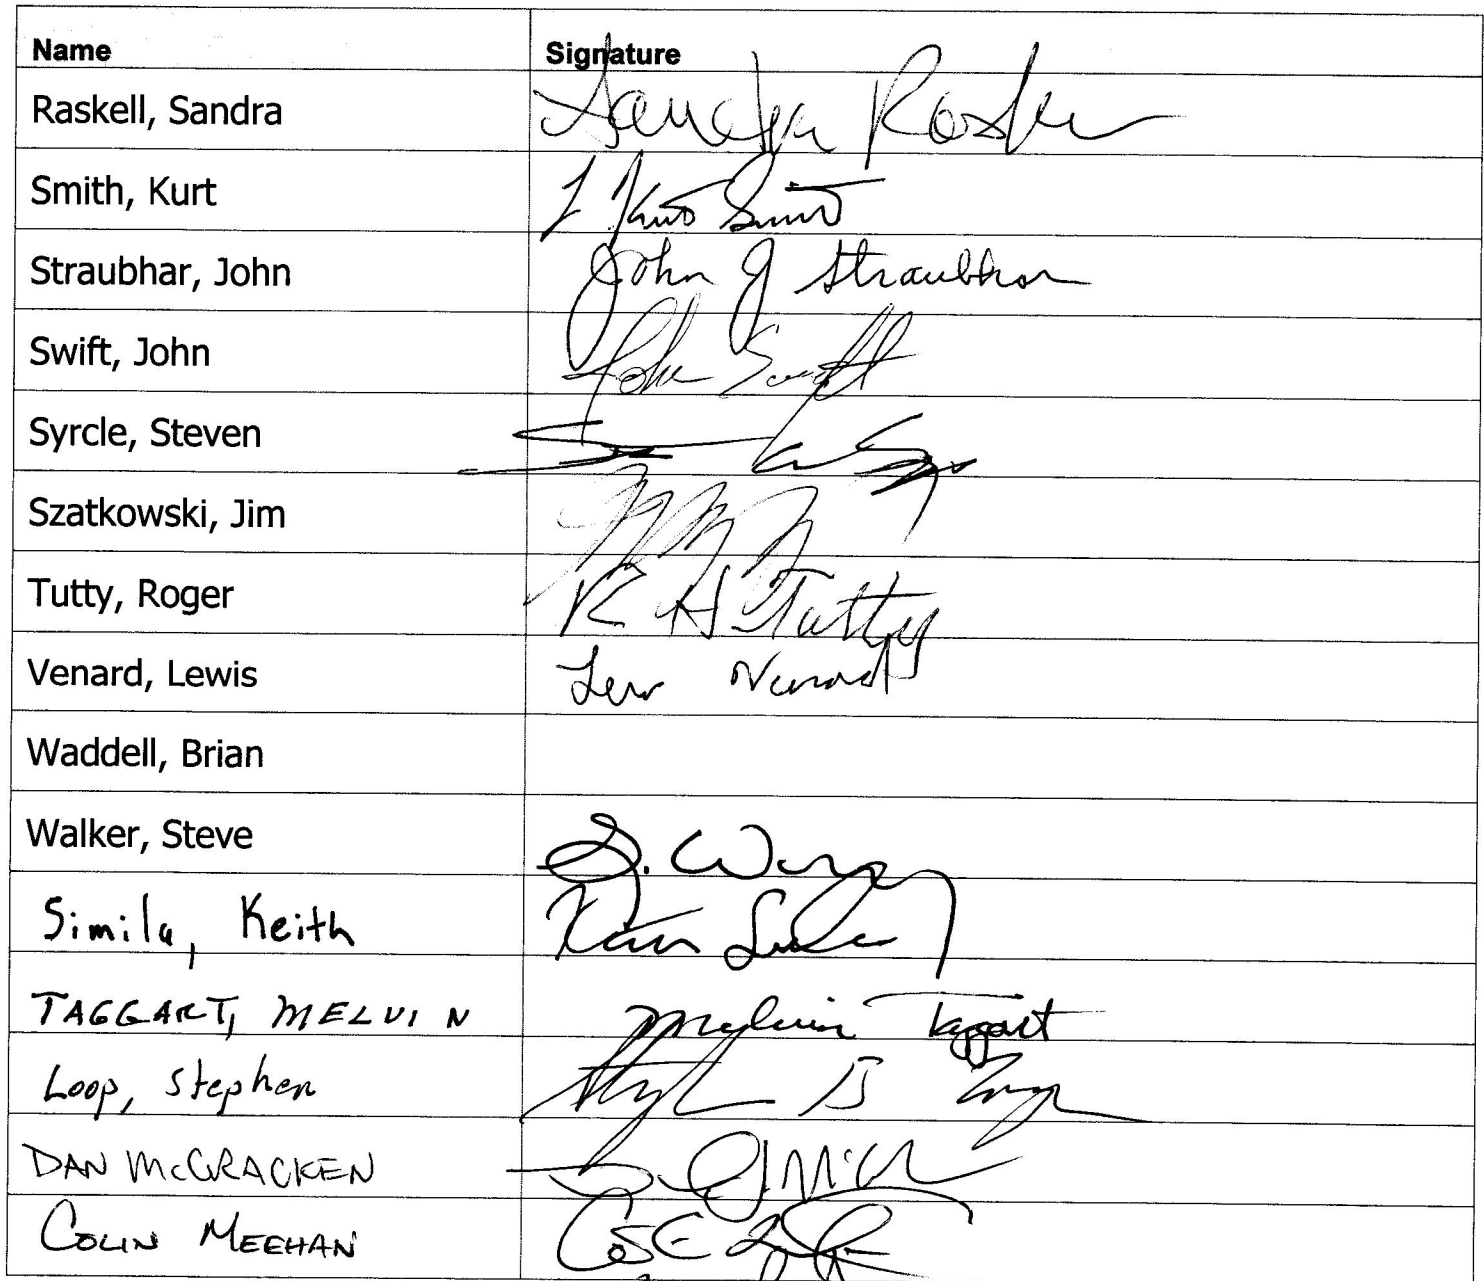 Name Signature
Raskell, Sandra Sandra
Smith, Kurt Kurt Smith
Straubhar, John John J Straubhar
Swift, John John Swift
Syrcle, Steven
Szatkowski, Jim
Tutty, Roger R H Tutty
Venard, Lewis Lew Venard
Waddell, Brian
Walker, Steve S.
Simila, Keith
TAGGART, MELVIN Melvin Taggart
Loop, Stephen
DAN McCRACKEN
COLIN MEEHAN